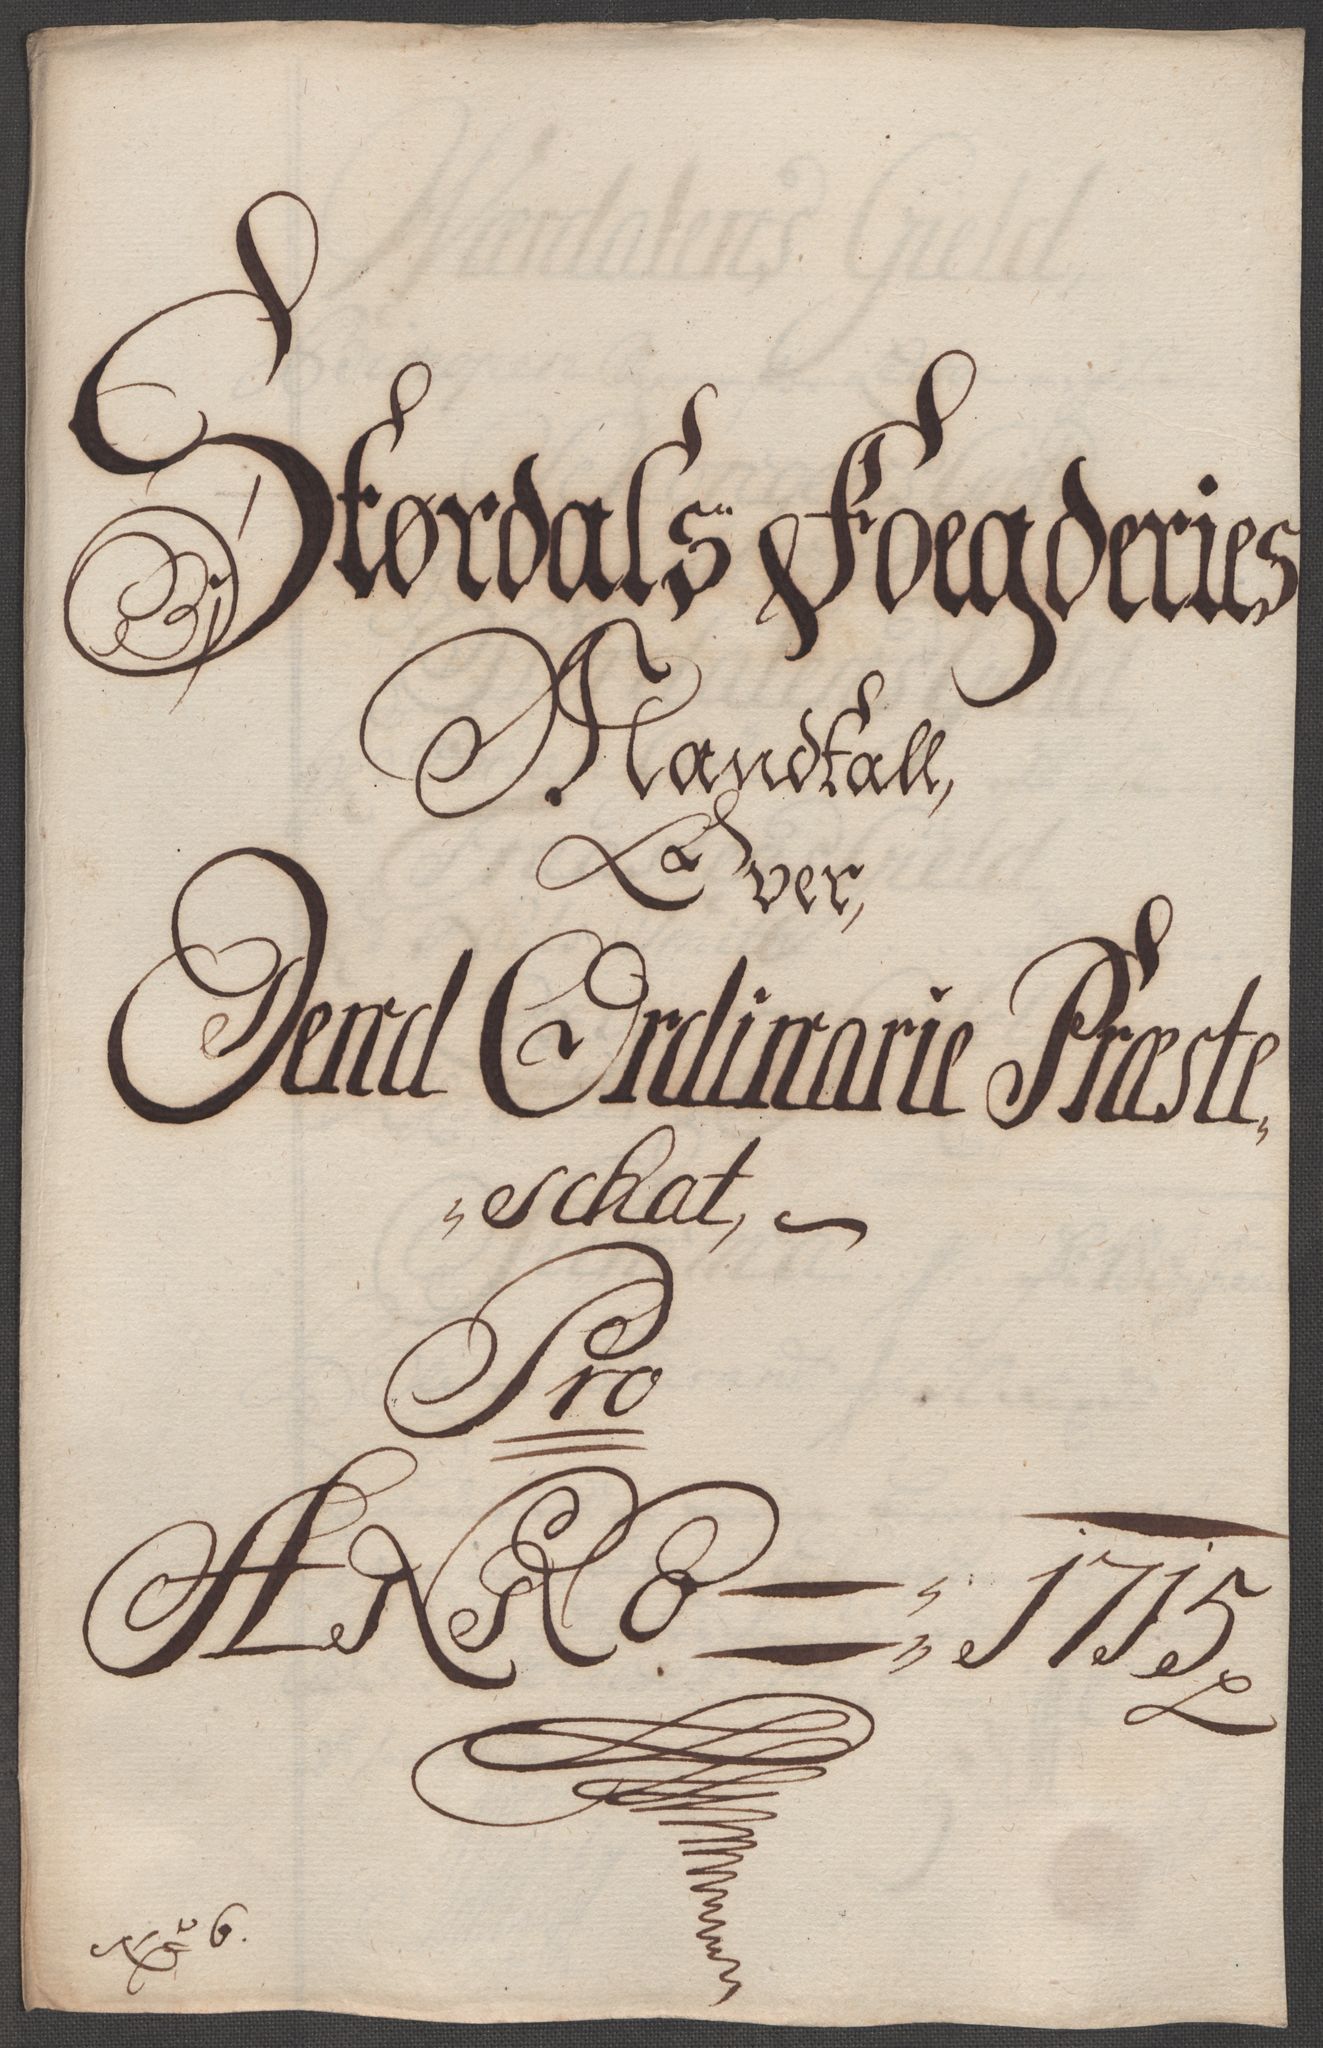 Størdals Foegderies
Mandtall,
Over,
Dend Ordinarie Præste,
,schat,
Pro
ANNO 1715
No 6.